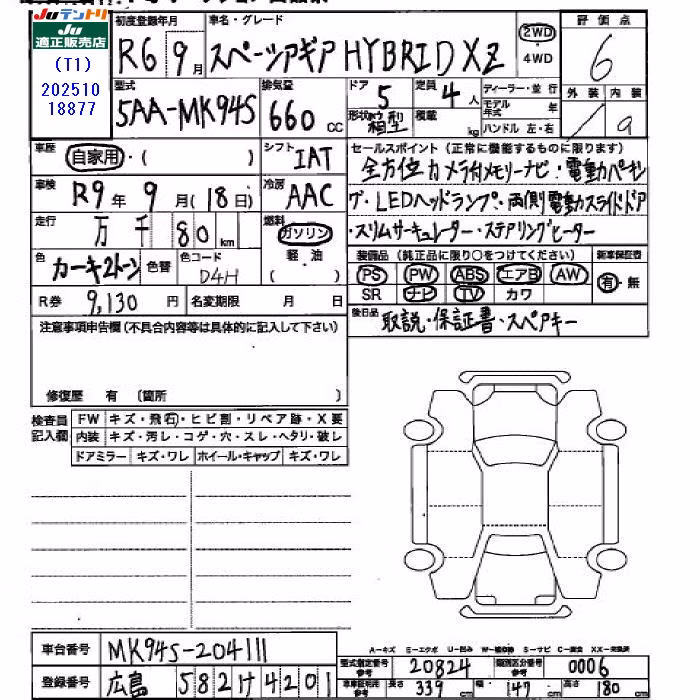 Juテントリ
Ju
適正販売店
(T1)
202510
18877
初度登録年月
R6 9月
車名・グレード
スペーシアギア HYBRID XZ
2WD
4WD
評価点
6
外装 内装
9
型式
5AA-MK94S
排気量
660 CC
ドア
5
形状
箱型
定員
4人
積載
kg
ディーラー・並行
モデル年式 年
ハンドル 左・右
車歴
自家用・( )
シフト
IAT
車検
R9年 9月(18日)
冷房
AAC
走行
万 千 80 km
燃料
ガソリン
軽・油
( )
色
カーキ2トーン
色替
色コード
D4H
R券 9,130円
名変期限 月 日
セールスポイント(正常に機能するものに限ります)
全方位カメラ付メモリーナビ・電動パーキン
グ・LEDヘッドランプ・両側電動スライドドア
・スリムサーキュレーター・ステアリングヒーター
装備品(純正品に限り○をつけてください)
PS PW ABS エアB AW
SR ナビ TV カワ
新車保証書
有・無
後日品
取説・保証書・スペアキー
注意事項申告欄(不具合内容等は具体的に記入して下さい)
修復歴 有 (箇所 )
検査員記入欄
FW キズ・飛石・ヒビ割・リペア跡・X要
内装 キズ・汚レ・コゲ・穴・スレ・ヘタリ・破レ
ドアミラー キズ・ワレ ホイール・キャップ キズ・ワレ
車台番号 MK94S-204111
登録番号 広島 582 け 4201
A-キズ E-エクボ U-凹み W-補修跡 S-サビ C-腐食 XX-交換済
型式指定番号 参考 20824
類別区分番号 参考 0006
車庫証明用 参考 長さ 339 幅 147 cm 高さ 180 cm